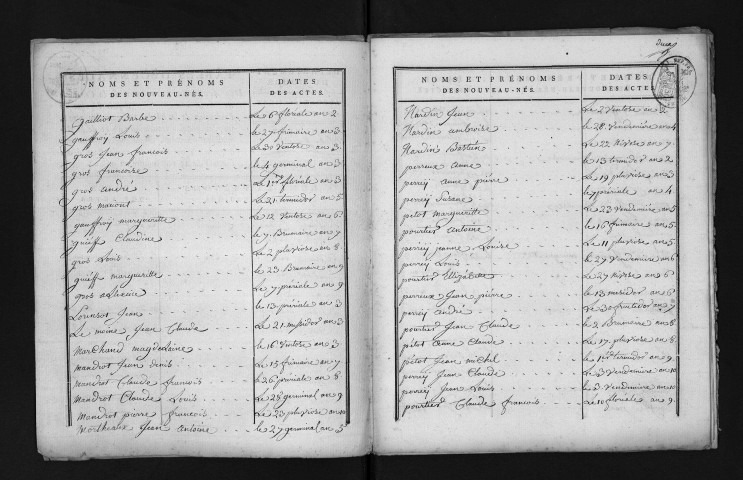 NOMS ET PRÉNOMS DES NOUVEAU-NÉS. DATES DES ACTES.
gailliot Barbe Le 6 floriale an 2
gauffroy Louis le 27 frimaire an 3
gros Jean francois Le 30 Ventose an 3
gros francoise le 4 germinal an 3
gros andre Le 1er floriale an 3
gros Le 21 termidor an 5
gauffroy margueritte Le 12 Ventose an 6
guieff Claudine le 7 Brumaire an 7
gros Louis Le 2 pluviose an 8
guieff margueritte le 23 Brumaire an 9
gros Le 7 periale an 9
Jean le 13 preriale an 3
Le moine Jean Claude Le 21 mesidor an 3
Marchand magdelaine le 16 Vintose an 3
mandrot Jean denis le 15 frimaire an 7
mandrot Claude francois le 26 preriale an 8
mandrot Claude Louis Le 28 germinal an 9
mandrot pierre francois Le 23 pluviose an 10
Jean antoine le 27 germinal an 5
NOMS ET PRÉNOMS DES NOUVEAU-NÉS. DATES DES ACTES.
Nardin Jean Le 2 Ventose an 2
Nardin ambroise le 28 Vendemiaire an 4
Nardin Bastien Le 22 Nivose an 7
perreux anne le 13 termidor an 2
perrey anne piérre Le 19 pluviose an 3
perrey Susane le 7 preriale an 4
petot margueritte Le 23 Vendemiaire an 5
pourtier antoine le 16 frimaire an 5
perrey jeanne Louise Le 11 pluviose an 5
perrey Louis le 29 Vendemiaire an 6
pourtier Elizabette Le 27 Nivose an 6
perreux Jean piérre le 13 mesidor an 6
perrey andré Le 30 fructidor an 7
pourtier Jean Claude le 2 Brumaire an 8
pétot anne Claude Le 17 pluviose an 8
pétot Jean michel le 1er termidor an 9
perrey Jean Claude Le 3 Vendemiaire an 10
perrey Jean Louis le 3 Vendemiaire an 10
pourtier Claude francois Le 10 floriale an 9